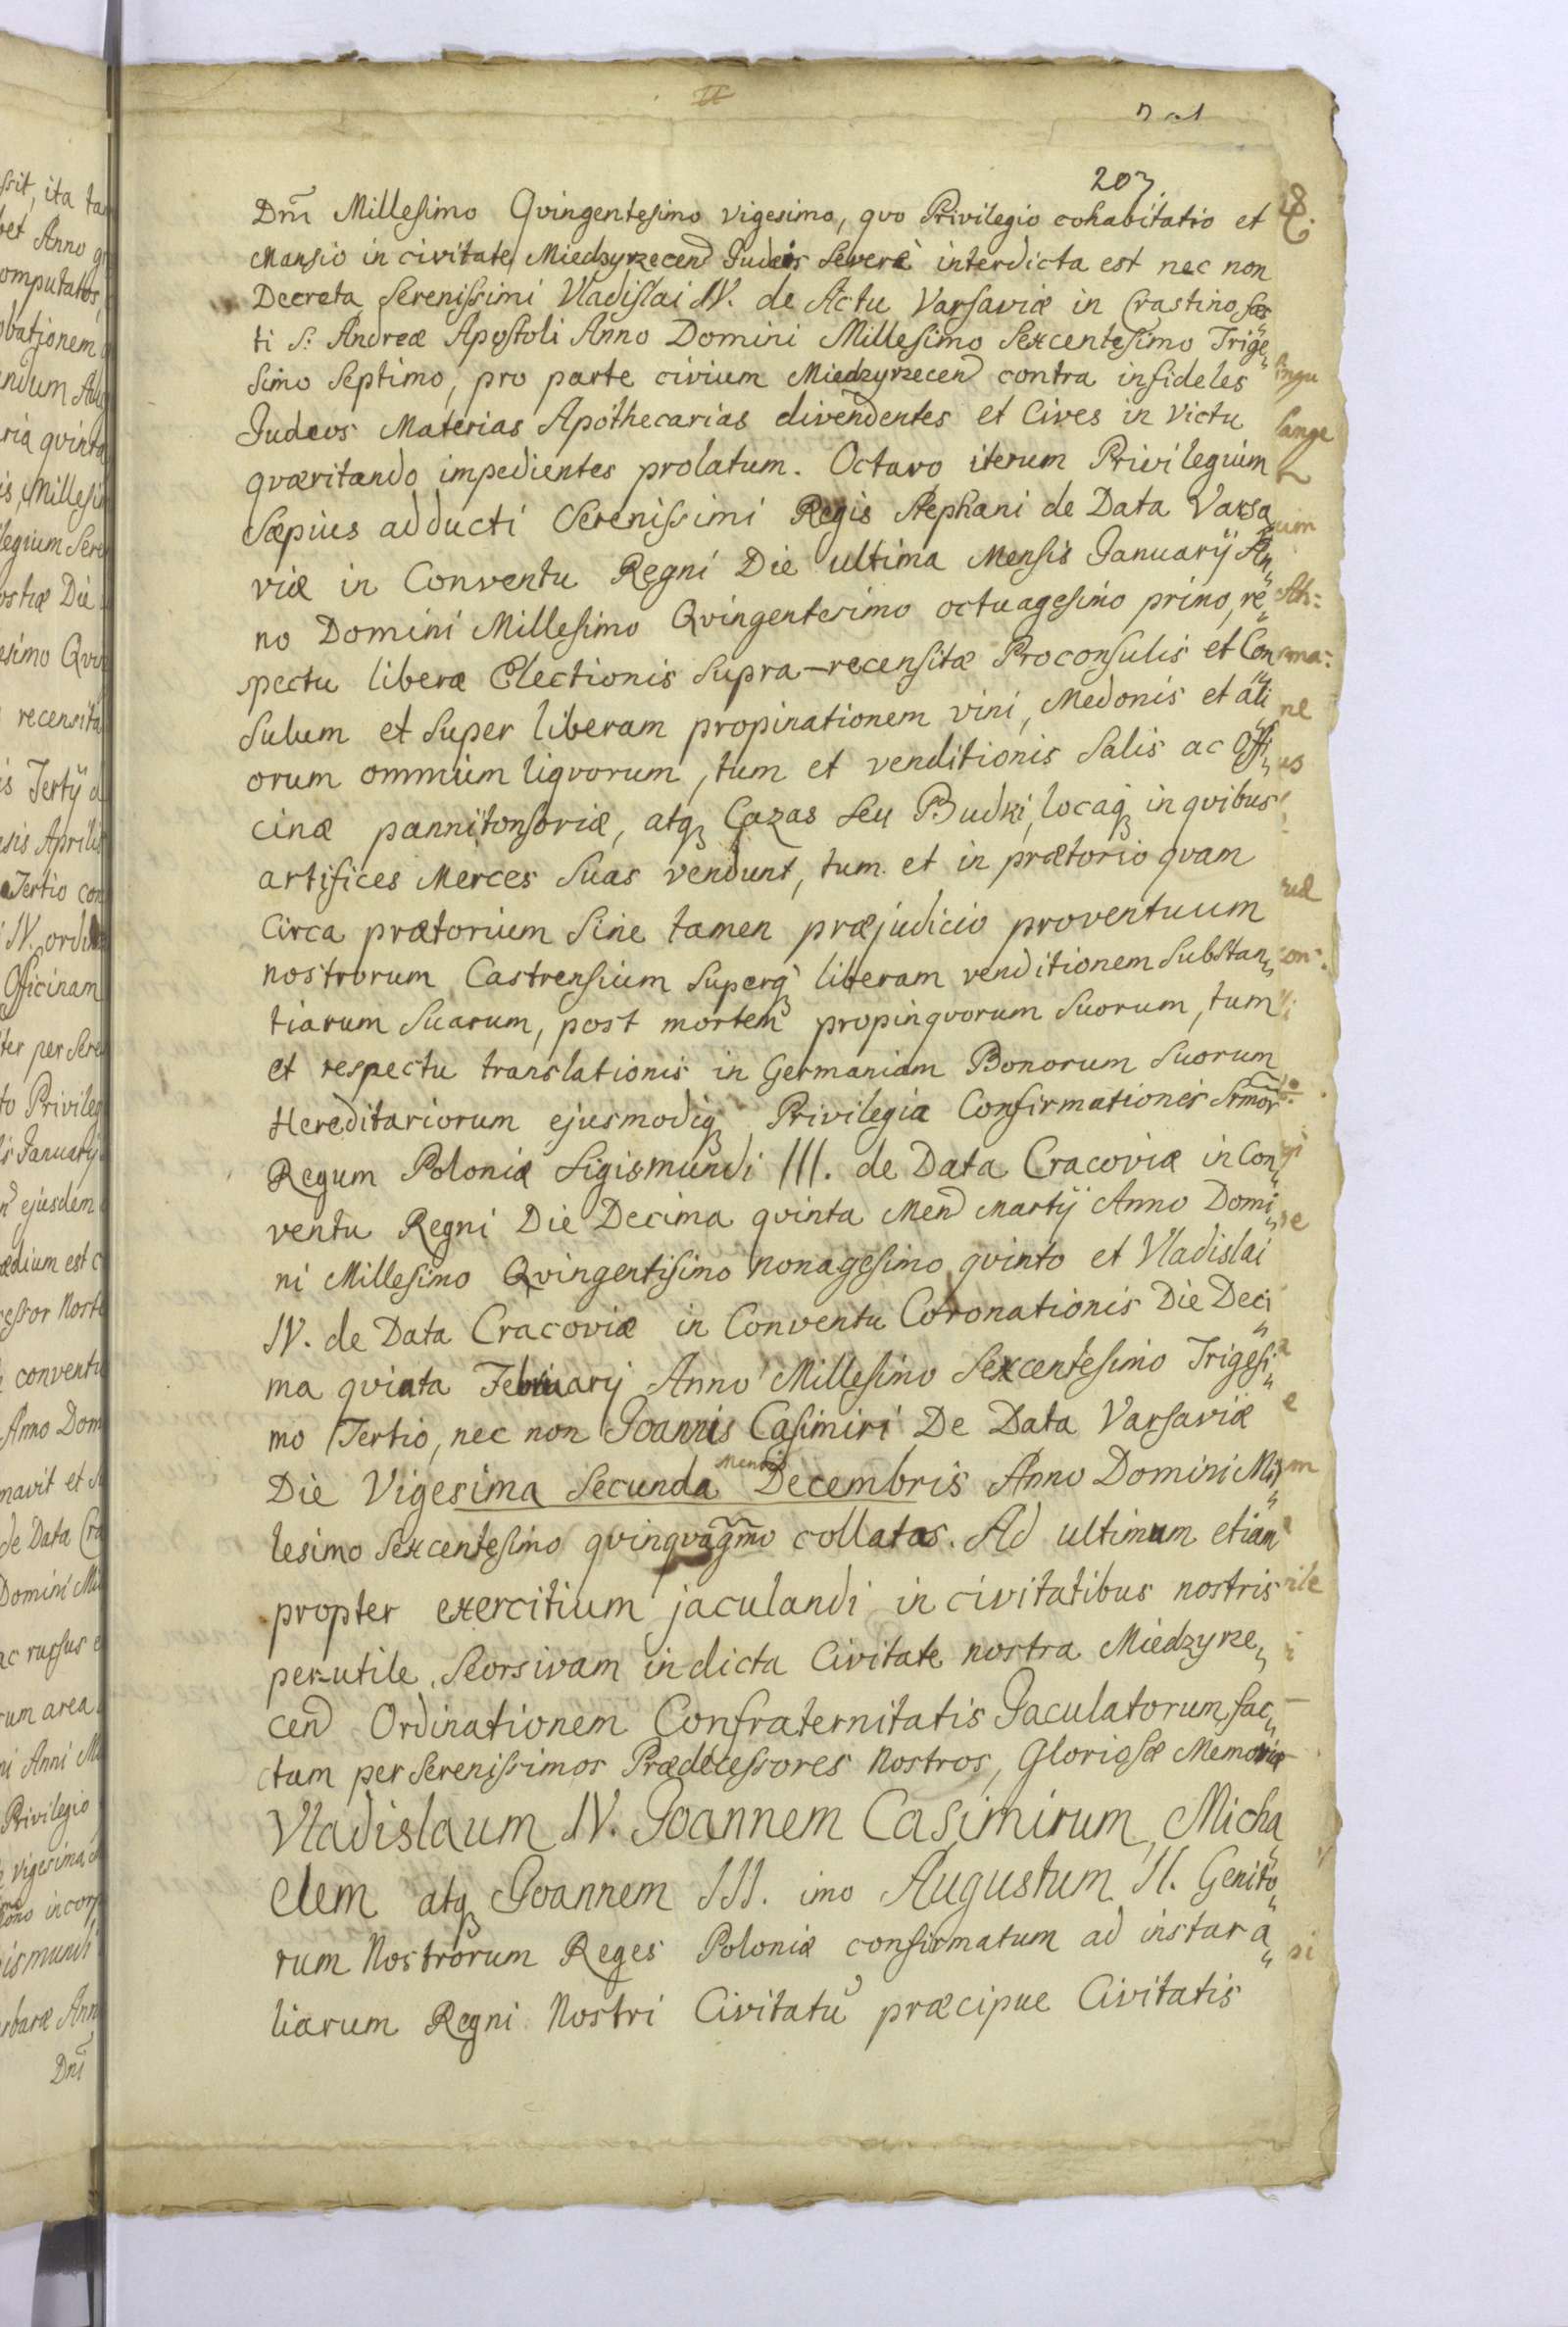 203.
Dm̃ Millesimo Qvingentesimo vigesimo, qvo Privilegio cohabitatio et
Mansio in civitate Miedzyrzecen Judeis severè interdicta est nec non
Decreta Serenissimi Vladislai IV. de Actu Varsaviæ in Crastino fes„
ti S: Andreæ Apostoli Anno Domini Millesimo Sexcentesimo Trige„
simo Septimo, pro parte civium Miedzyrzecen contra infideles
Judeos Materias Apothecarias divendentes et Cives in victu
qværitando impedientes prolatum. Octavo iterum Privilegium
Sæpius adducti Serenissimi Regis Stephani de Data Varsa„
viæ in Conventu Regni Die ultima Mensis Januarij An„
no Domini Millesimo Qvingentesimo octuagesimo primo, re„
spectu liberæ Electionis supra-recensitæ Proconsulis et Con„
sulum et super liberam propinationem vini, Medonis et ali„
orum omnium liqvorum, tum et venditionis Salis ac Offi„
cinæ pannitonsoriæ, atqꝫ Cazas seu Budki, locaqꝫ in qvibus
artifices Merces suas vendunt, tum et in prætorio qvam
circa prætorium sine tamen præjudicio proventuum
nostrorum Castrensium superqꝫ liberam venditionem Substan„
tiarum suarum, post mortem propinqvorum suorum, tum
et respectu translationis in Germaniam Bonorum suorum
Hereditariorum ejusmodiqꝫ Privilegia Confirmationes Srmor̃
Regum Poloniæ Sigismundi III. de Data Cracoviæ in Con„
ventu Regni Die Decima qvinta Men Martij Anno Domi„
ni Millesimo Qvingentisimo nonagesimo qvinto et Vladislai
IV. de Data Cracoviæ in Conventu Coronationis Die Deci„
ma qvinta Februarij Anno Millesimo Sexcentesimo Trigesi„
mo Tertio, nec non Joannis Casimiri De Data Varsaviæ
Die Vigesima Secunda Mensis Decembris Anno Domini Mil„
lesimo Sexcentesimo qvinqvagm̃o collatas. Ad ultimum etiam
propter exercitium jaculandi in civitatibus nostris
perutile, seorsivam in dicta Civitate nostra Miedzyrze„
cen Ordinationem Confraternitatis Jaculatorum fac„
ctam per Serenissimos Prædecessores Nostros, Gloriosæ Memoriæ
Vladislaum IV. Joannem Casimirum, Micha„
elem atqꝫ Joannem III. imo Augustum II. Genito„
rum Nostrorum Reges Poloniæ confirmatum ad instar a„
liarum Regni Nostri Civitatũ præcipue Civitatis